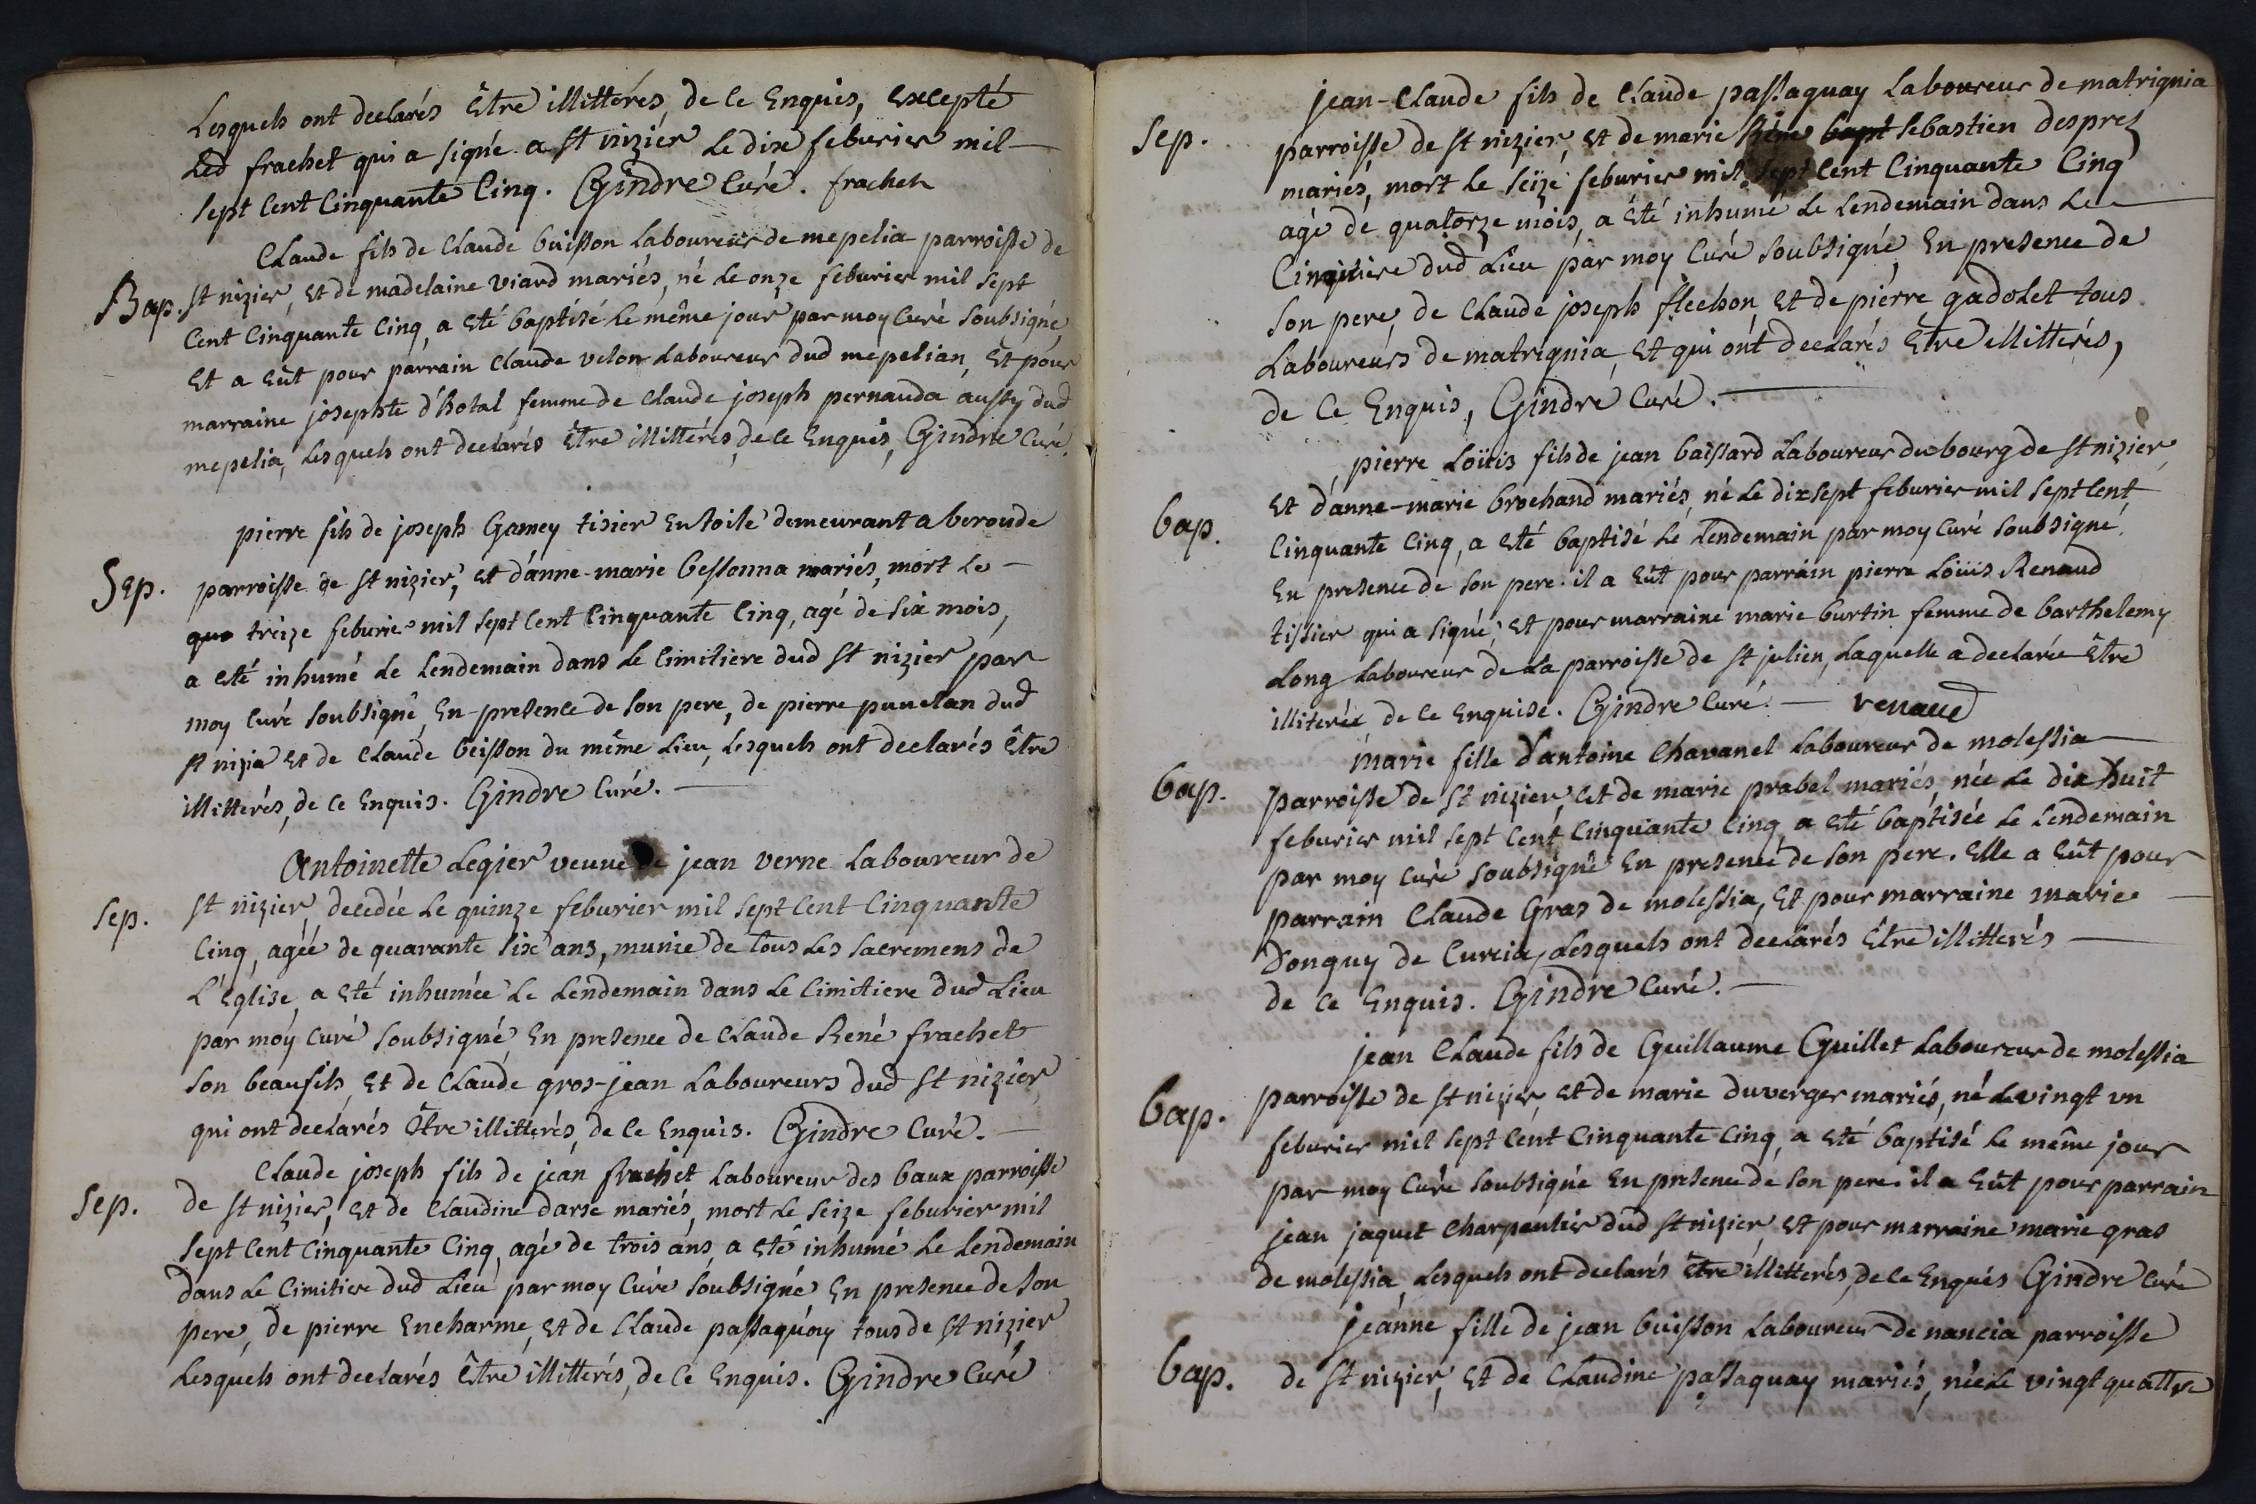 Lesquels ont declarés Être illitterés, de Ce Enquis, Excepté
Led frachet qui a signé a st nizier Le dix feburier mil
sept Cent Cinquante Cinq. Gindre Curé. frachet
Claude fils de Claude buisson Laboureur de mepelia parroisse de
Bap. st nizier, et de madelaine viard mariés, né Le onze feburier mil sept
Cent Cinquante Cinq, a Eté baptisé Le même jour par moy Curé soubsigné,
Et a Eût pour parrain Claude velon Laboureur dud mepelian, Et pour
marraine josephte d'hotal femme de Claude joseph pernauda aussy dud
mepelia, Lesquels ont declarés Être illitterés, de Ce Enquis, Gindre Curé.
pierre fils de joseph Gamey tisier En toile demeurant a beroude
Sep. parroisse de st nizier, et d'anne-marie bessonna mariés, mort Le
treize feburier mil sept Cent Cinquante Cinq, agé de six mois,
a Eté inhumé Le Lendemain dans Le Cimitiere dud st nizier par
moy Curé soubsigné, En presence de son pere, de pierre dud
st nizia et de Claude buisson du même Lieu, Lesquels ont declarés Être
illitterés, de Ce Enquis. Gindre Curé.
Antoinette Legier veuve de jean verne Laboureur de
Sep. st nizier, decedée Le quinze feburier mil sept Cent Cinquante
Cinq, agée de quarante six ans, munie de tous Les sacremens de
L'Eglise, a Eté inhumée Le Lendemain dans Le Cimitiere dud Lieu
par moy Curé soubsigné, En presence de Claude René frachet
son beaufils, Et de Claude gros-jean Laboureurs dud st nizier,
qui ont declarés Être illitterés, de Ce Enquis. Gindre Curé.
Claude joseph fils de jean frachet Laboureur des baux parroisse
Sep. de st nizier, Et de Claudine darse mariés, mort Le seize feburier mil
sept Cent Cinquante Cinq, agé de trois ans, a Eté inhumé Le Lendemain
dans Le Cimitiere dud Lieu par moy Curé soubsigné En presence de son
pere, de pierre Encharme, et de Claude passaquay tous de st nizier,
Lesquels ont declarés Être illitterés, de Ce Enquis. Gindre Curé
jean-Claude fils de Claude passaquay Laboureur de matrignia
Sep. parroisse de st nizier, et de marie sebastien despres
mariés, mort Le seize feburier mil sept Cent Cinquante Cinq
agé de quatorze mois, a Eté inhumé Le Lendemain dans Le
Cimitiere dud Lieu par moy Curé soubsigné En presence de
son pere, de Claude joseph flechon, et de pierre gadolet tous
Laboureurs de matrignia, et qui ont declarés Être illitterés,
de Ce Enquis, Gindre Curé.
pierre Loüis fils de jean baissard Laboureur du bourg de st nizier,
bap. Et d'anne-marie brochand mariés, né Le dixsept feburier mil sept Cent
Cinquante Cinq, a Eté baptisé Le Lendemain par moy Curé soubsigné,
En presence de son pere. il a Eût pour parrain pierre Loüis Renaud
tissier qui a signé, et pour marraine marie burtin femme de barthelemy
Long Laboureur de La parroisse de st julien, Laquelle a declarée Être
illiterée de Ce Enquise. Gindre Curé. renaud
marie fille d'antoine Chavanel Laboureur de molessia
bap. parroisse de st nizier, et de marie prabel mariés, née Le dix huit
feburier mil sept Cent Cinquante Cinq, a Eté baptisée Le Lendemain
par moy Curé soubsigné En presence de son pere. Elle a Eût pour
parrain Claude Gras de molessia, Et pour marraine marie
donguy de Curcia, Lesquels ont declarés Être illitterés
de Ce Enquis. Gindre Curé.
jean Claude fils de Guillaume Guillet Laboureur de molessia
bap. parroisse de st nizier, et de marie duverger mariés, né Le vingt un
feburier mil sept Cent Cinquante Cinq, a Eté baptisé Le même jour
par moy Curé soubsigné En presence de son pere. il a Eût pour parrain
jean jaquet Charpentier dud st nizier, Et pour marraine marie gras
de molessia, Lesquels ont declarés Être illitterés, de Ce Enqués Gindre Curé
jeanne fille de jean buisson Laboureur de nancia parroisse
bap. de st nizier, Et de Claudine passaquay mariés, née Le vingt quattre